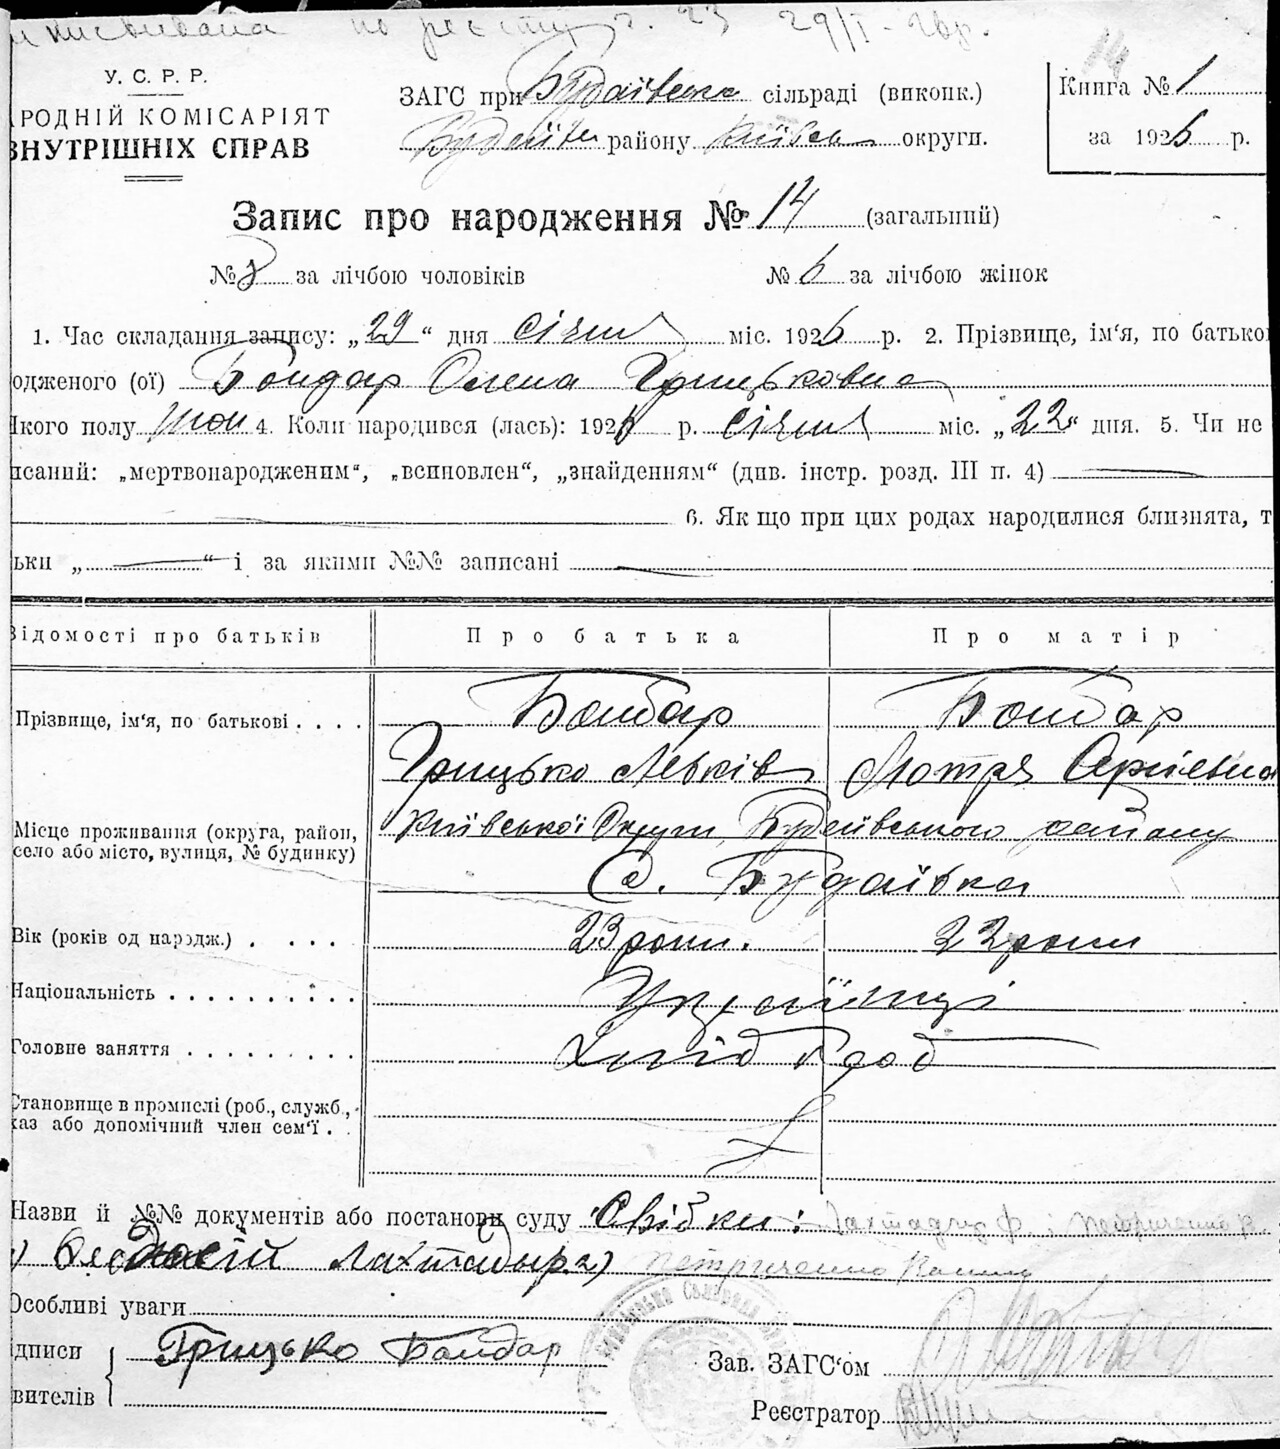 по реєстру г. 23 29/I-26р.
14
У. С. Р. Р.
РОДНІЙ КОМІСАРІЯТ
ВНУТРІШНІХ СПРАВ
ЗАГС при Будаївська сільраді (виконк.)
Будаївськ району Київськ округи.
Книга № 1
за 1926 р.
Запис про народження № 14 (загальний)
№ 8 за лічбою чоловіків № 6 за лічбою жінок
1. Час складання запису: „29“ дня січня міс. 1926 р. 2. Прізвище, ім‘я, по батько
одженого (ої) Бондар Олена Грицьковна
Якого полу жон 4. Коли народився (лась): 1926 р. січня міс. „22“ дня. 5. Чи не
исаний: „мертвонародженим“, „всиновлен“, „знайденням“ (див. інстр. розд. III п. 4)
6. Як що при цих родах народилися близнята, т
ьки „ “ і за якими №№ записані
Відомості про батьків Про батька Про матір
Прізвище, ім‘я, по батькові . . . . Бондар Бондар
Грицько Левків Мотря Сергіевна
Місце проживання (округа, район, село або місто, вулиця, № будинку) Київської Округи Будаївського району
С. Будаївка
Вік (років од народж.) . . . . 23 роки. 22 роки
Національність . . . . . . . . . . Українці
Головне заняття . . . . . . . . . Хлібороб
Становище в промислі (роб., служб.,
каз або допомічний член сем‘ї . .
Назви й №№ документів або постанови суду Свідки: Лахтадир Ф. Петриченко К.
Лахтадыр 2) Петриченко
Особливі уваги
ідписи Грицько Бондар
явителів
Зав. ЗАГС‘ом
Реєстратор